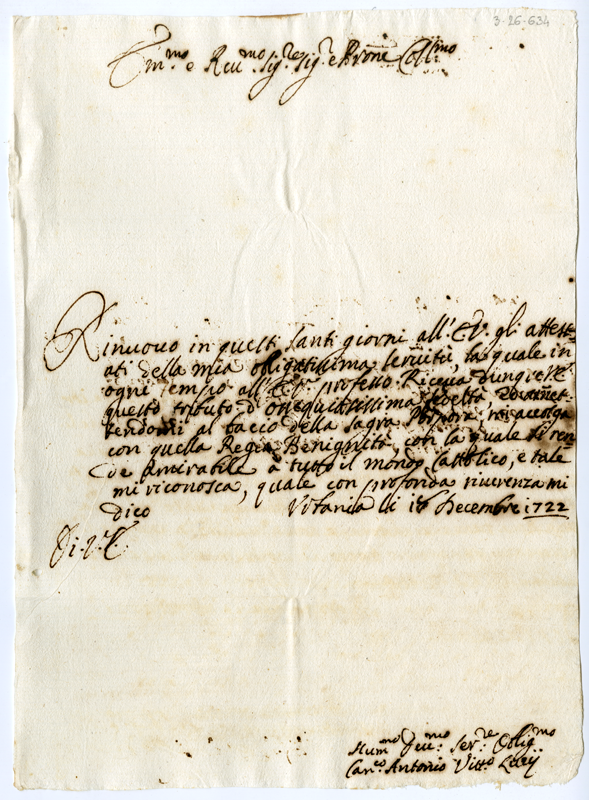 3-26-634
Em.mo e Reu.mo Sig.re Sig.r e Prone Coll.mo
Rinuouo in questi santi giorni all'E.V. gli attest-
ati della mia obligatissima seruitù, la quale in
ogni tempo all'E.V. professo. Riceua dunq;
questo tributo d'ossequiosissima
tendomi al baccio della Sagra Porpora, mi accolga
con quella Regia Benignità, con la quale si ren
de Amirabile a tutto il mondo Cattolico, e tale
mi riconosca, quale con profonda riuerenza mi
dico li 18 Decembre 1722
Di V.E.
Hum.mo Deu.mo Ser.re Oblig.mo
Can.co Antonio Vitt.o